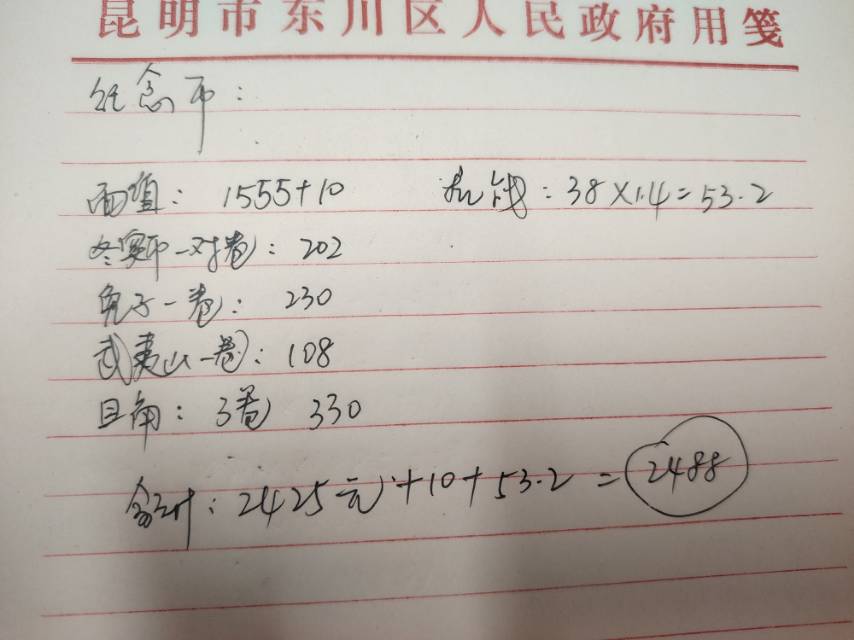 昆明市东川区人民政府用笺
纪念币：
面值：1555+10
机钱：38×1.4=53.2
冬奥币一对卷：202
兔子一卷：230
武夷山一卷：108
旦角：3卷 330
合计：2425元+10+53.2=2488